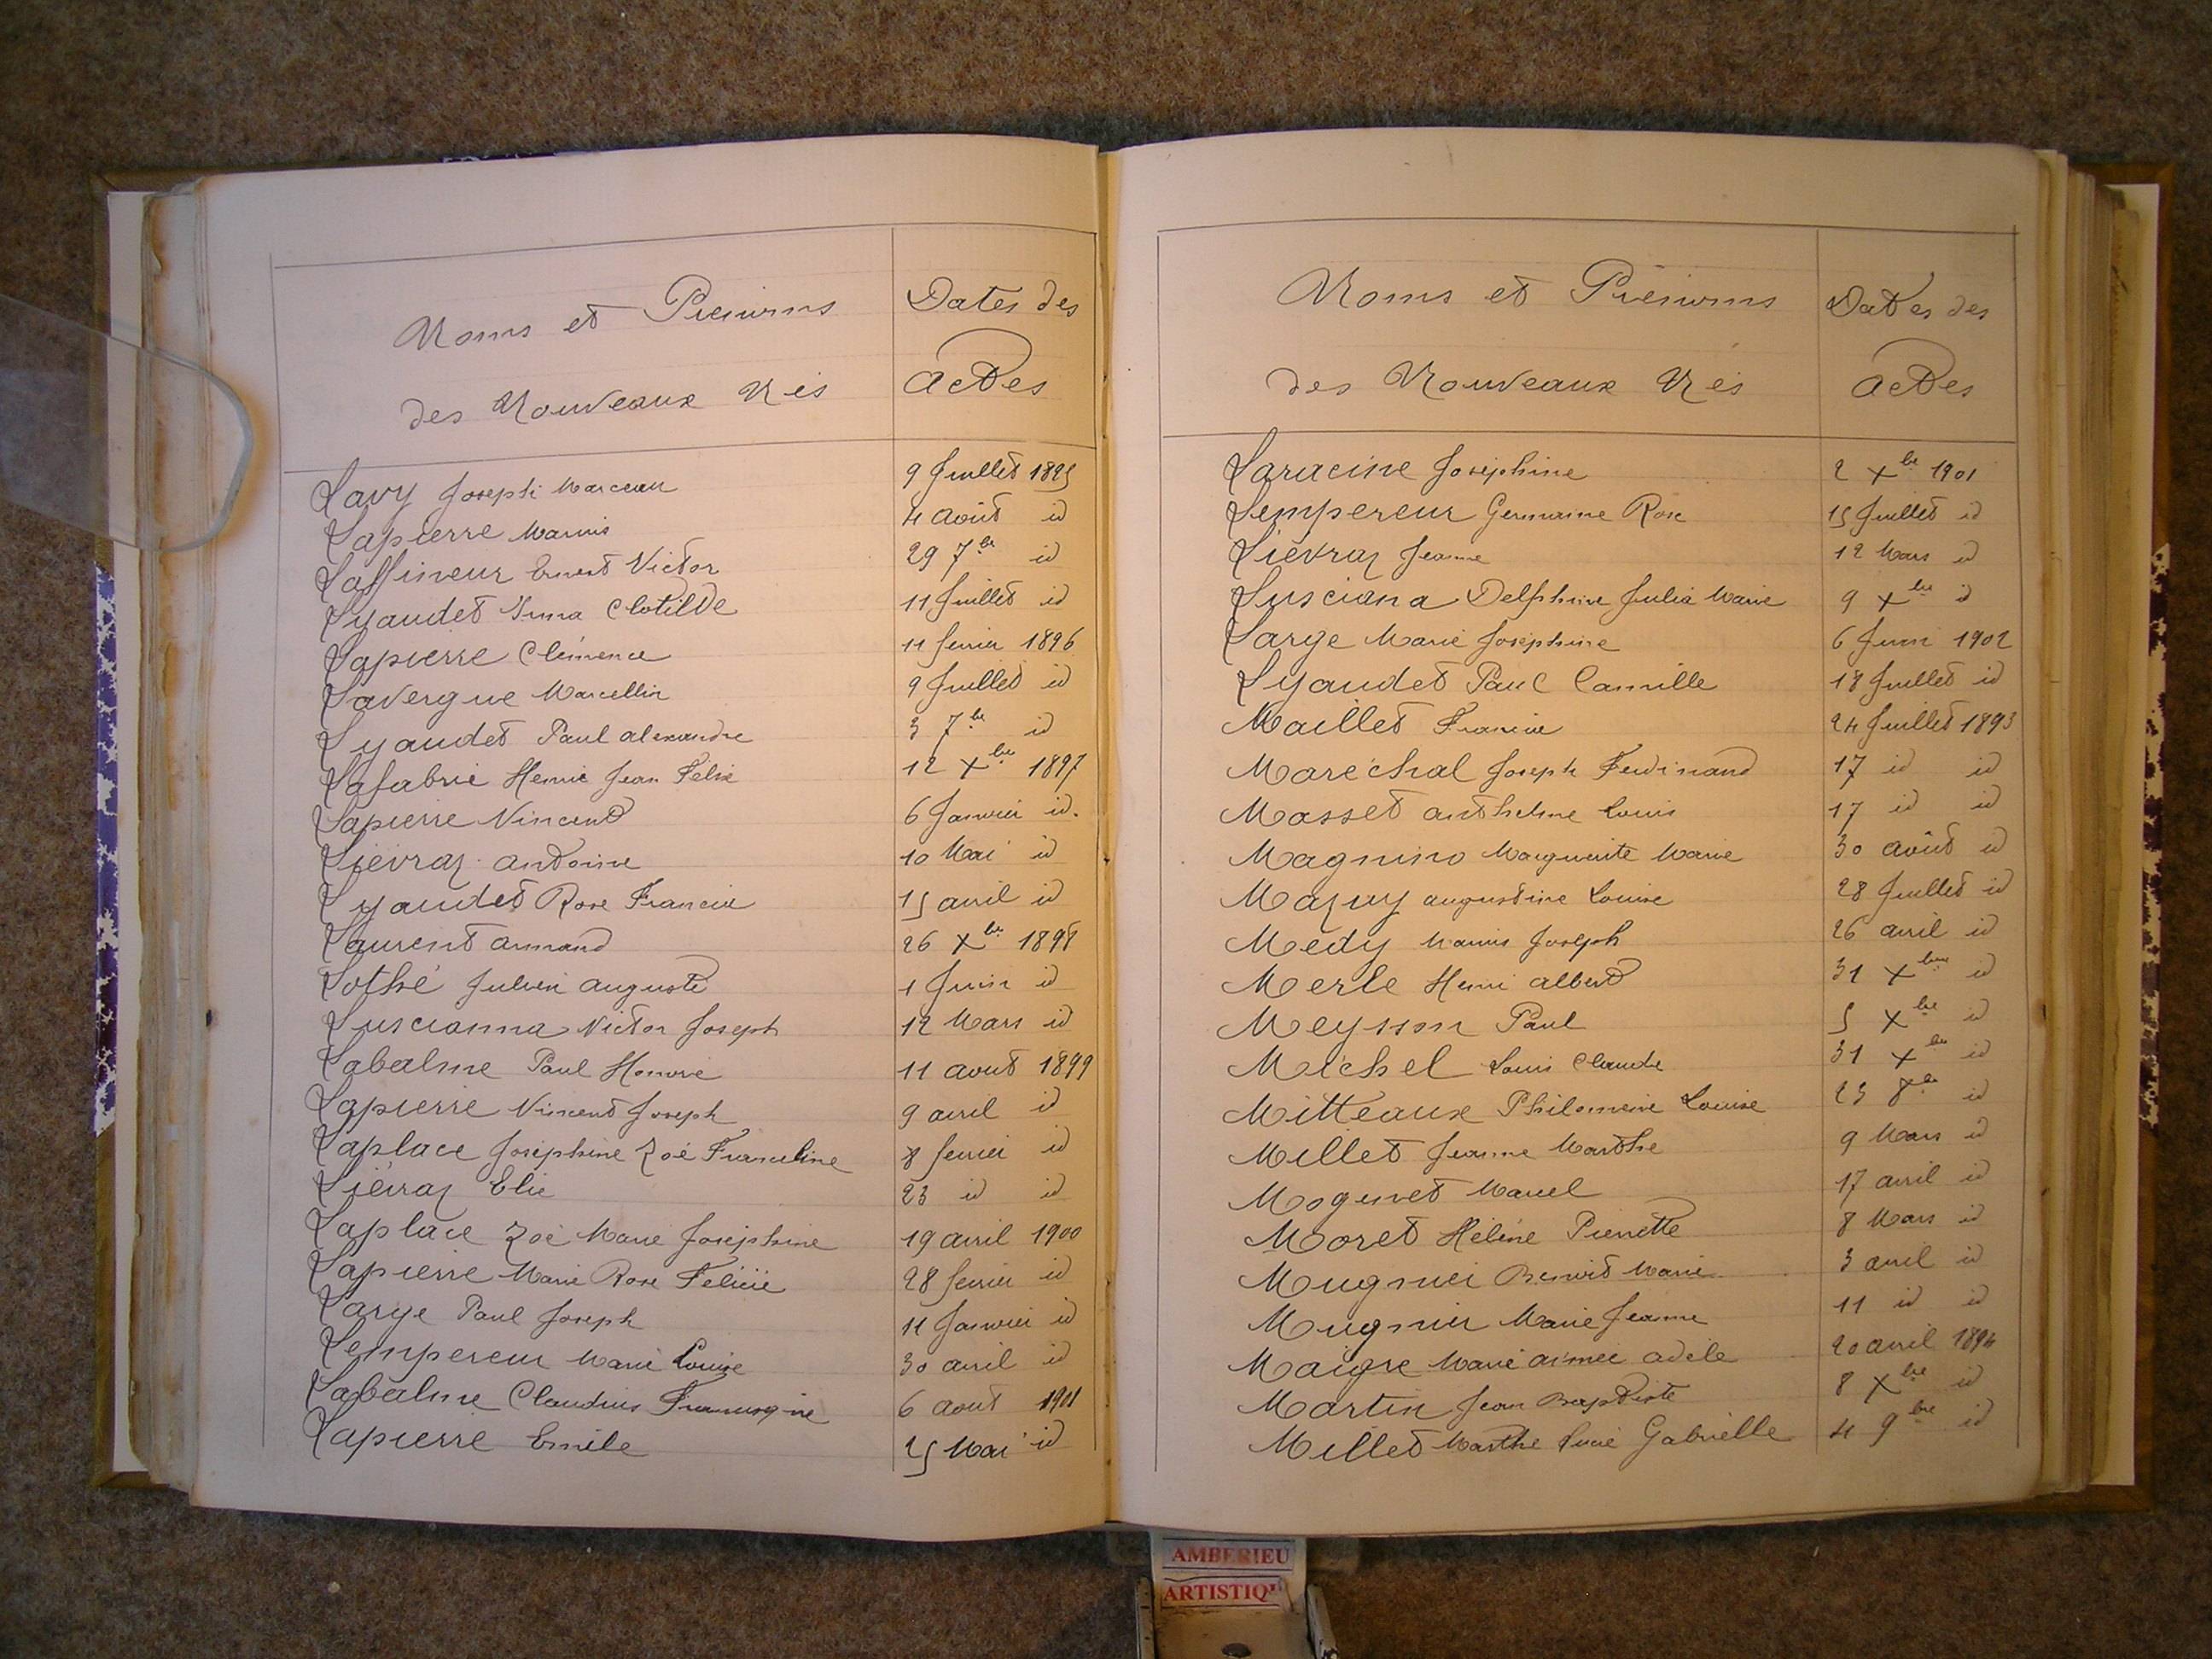 Noms et Prénoms
des Nouveaux Nés
Dates des
actes
Lavy Joseph Marceau 9 Juillet 1895
Lapierre Marius 4 août id
Laffineur Ernest Victor 29 7bre id
Lyaudet Irma Clotilde 11 Juillet id
Lapierre Clémence 11 fevrier 1896
Lavergne Marcellin 9 Juillet id
Lyaudet Paul alexandre 3 7bre id
Lafabrie Henri Jean Felix 12 Xbre 1897
Lapierre Vincent 6 Janvier id.
Liévraz antoine 10 Mai id
Lyaudet Rose Francia 15 avril id
Laurent armand 26 Xbre 1898
Lothé Julien auguste 1 Juin id
Luscianna Victor Joseph 12 Mars id
Labalme Paul Honoré 11 aout 1899
Lapierre Vincent Joseph 9 avril id
Laplace Joséphine Zoé Franceline 8 fevrier id
Liévraz Elie 23 id id
Laplace Zoé Marie Joséphine 19 avril 1900
Lapierre Marie Rose Félicie 28 fevrier id
Large Paul Joseph 11 Janvier id
Lempereur Marie Louise 30 avril id
Labalme Claudius 6 aout 1901
Lapierre Emile 25 Mai id
Noms et Prénoms
des Nouveaux Nés
Dates des
actes
Laracine Joséphine 2 Xbre 1901
Lempereur Germaine Rose 15 Juillet id
Liévraz Jeanne 12 Mars id
Lusciana Delphine Julia Marie 9 Xbre id
Large Marie Joséphine 6 Juin 1902
Lyaudet Paul Camille 18 Juillet id
Maillet Francine 24 Juillet 1893
Maréchal Joseph Ferdinand 17 id id
Masset anthelme Louis 17 id id
Magnino Marguerite Marie 30 août id
Mazuy augustine Louise 28 Juillet id
Médy Marius Joseph 26 avril id
Merle Henri albert 31 Xbre id
Meysson Paul 5 Xbre id
Michel Louis Claude 31 Xbre id
Mitteaux Philomène Louise 23 8bre id
Millet Jeanne Marthe 9 Mars id
Mogenet Marcel 17 avril id
Moret Hélène Pierrette 8 Mars id
Mugnier Benoit Marie 3 avril id
Mugnier Marie Jeanne 11 id id
Maigre Marie aimée adèle 20 avril 1894
Martin Jean Baptiste 8 Xbre id
Millet Marthe Lucie Gabrielle 4 9bre id
AMBERIEU
ARTISTIQ